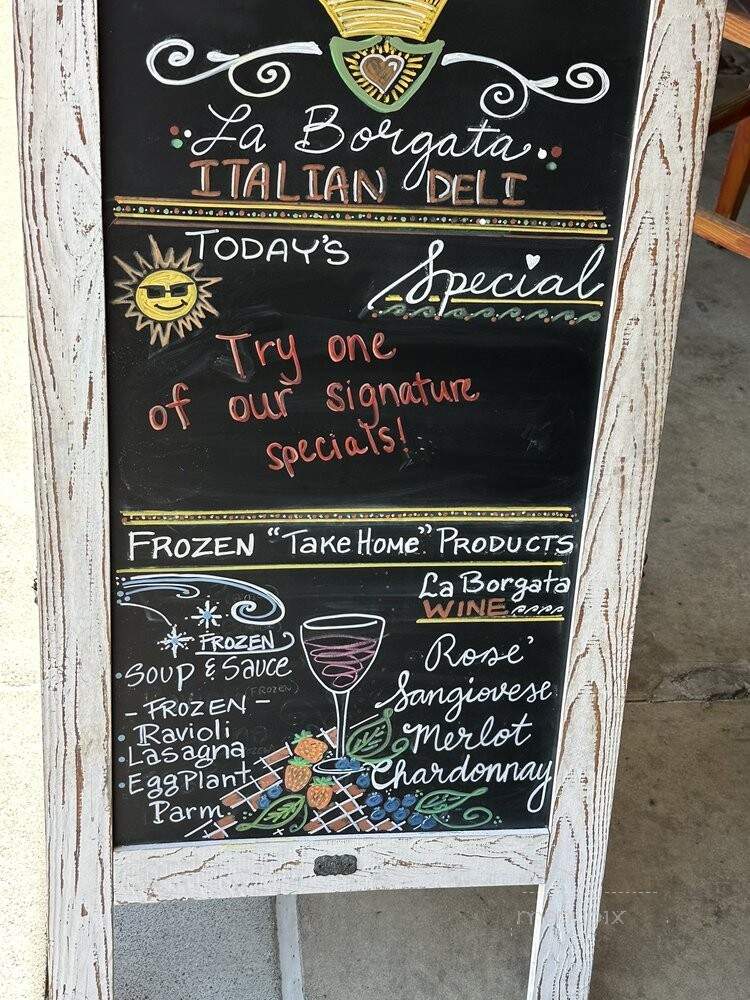 La Borgata
ITALIAN DELI
TODAY'S
Special
Try one
of our signature
specials!
FROZEN "Take Home" PRODUCTS
La Borgata
WINE
FROZEN
• Soup & Sauce
(FROZEN)
- FROZEN -
• Ravioli
• Lasagna
• EggPlant
Parm
Rose'
Sangiovese
Merlot
Chardonnay